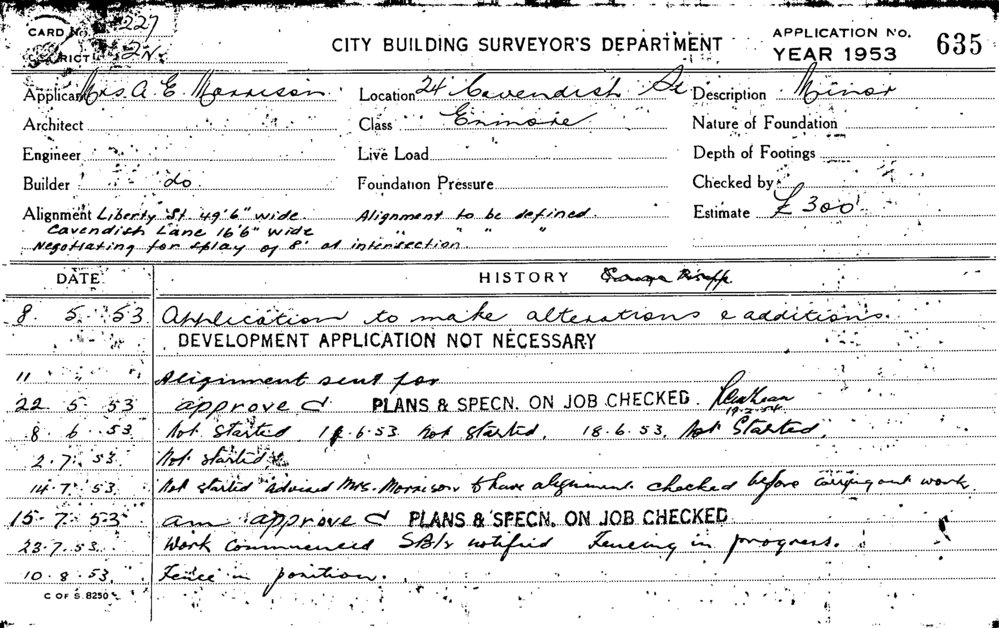 CARD No. 227
DISTRICT 2N.
CITY BUILDING SURVEYOR'S DEPARTMENT
APPLICATION No. 635
YEAR 1953
Applicant Mrs. A. E. Morrison Location 24 Cavendish St Description Minor
Architect Class Enmore Nature of Foundation
Engineer Live Load Depth of Footings
Builder do Foundation Pressure Checked by
Alignment Liberty St 49'6" wide. Alignment to be defined. Estimate £300
Cavendish Lane 16'6" wide " " " "
Negotiating for splay of 8' at intersection.
DATE HISTORY
8. 5. 53 Application to make alterations & additions.
DEVELOPMENT APPLICATION NOT NECESSARY
11 " " Alignment sent for
22 5 53 approved PLANS & SPECN. ON JOB CHECKED.
19.2.54
8 6 53 Not started. 1 .6.53 Not started. 18.6.53. Not Started.
2.7.53 Not started.
14.7.53 Not started advised Mrs. Morrison to have alignment checked before carrying out work.
15.7.53 am approved PLANS & SPECN. ON JOB CHECKED
23.7.53. Work Commenced notified Fencing in progress.
10.8.53. Fence in position.
C OF S. 8250